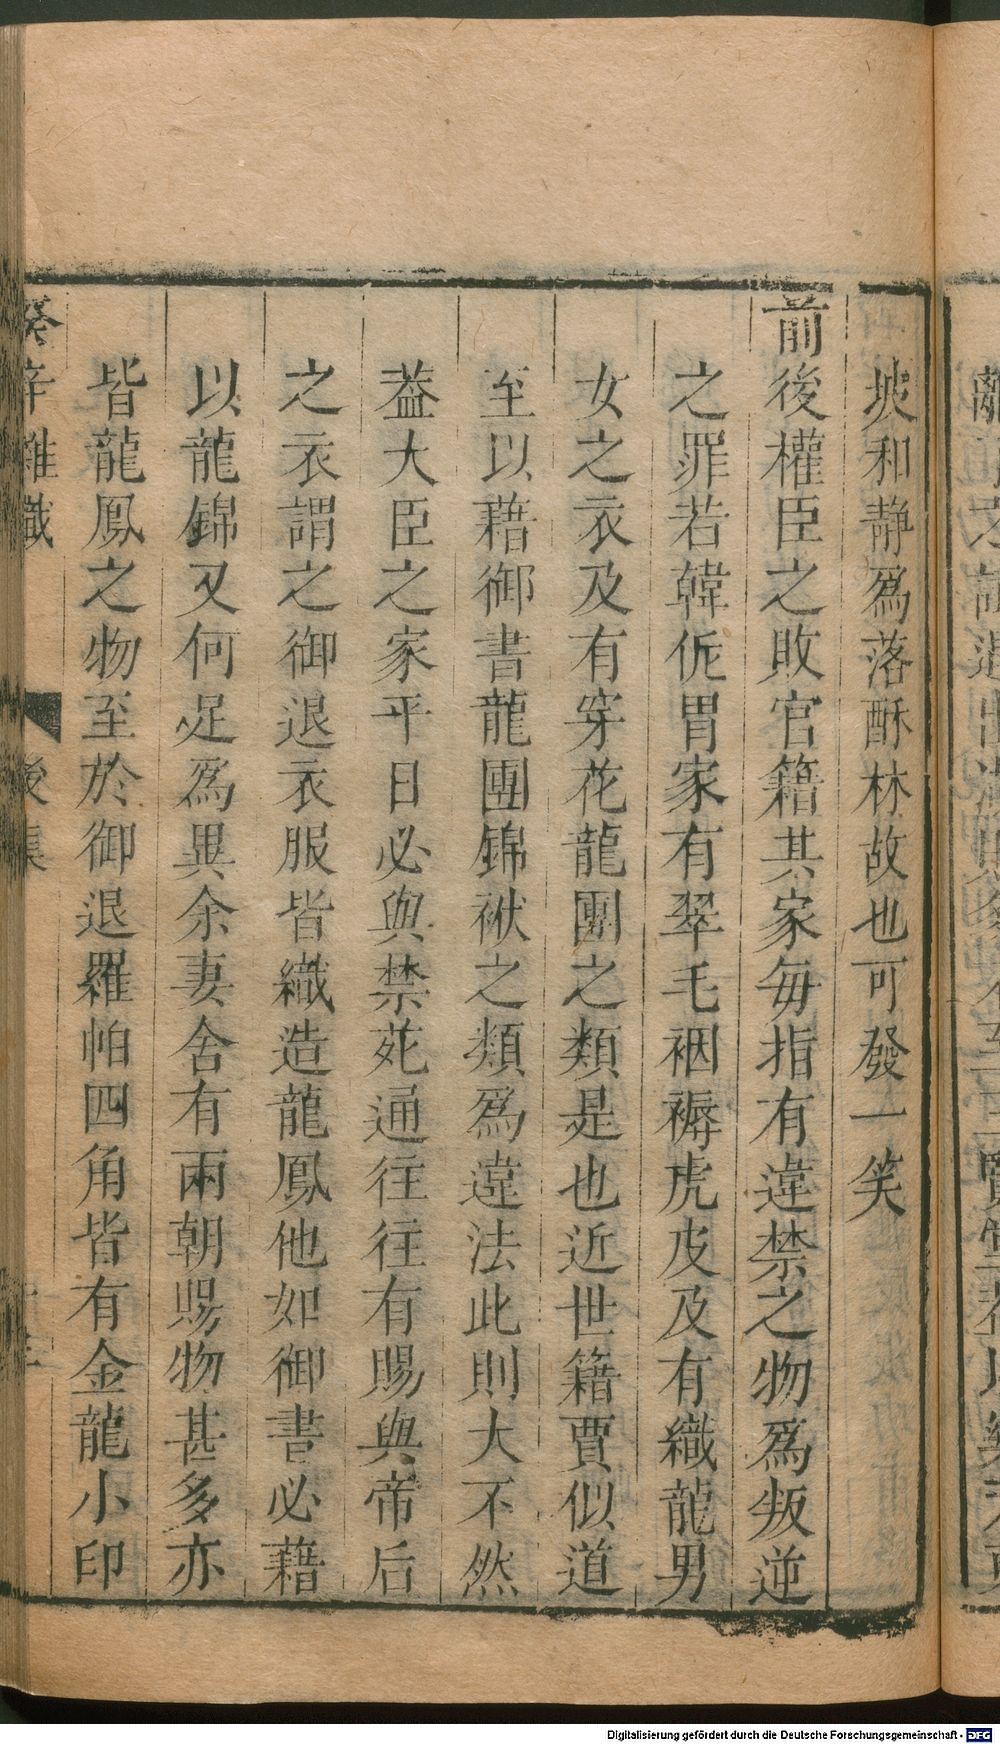 坡和静爲落酥林故也可發一笑
前後權臣之敗官籍其家每指有違禁之物爲叛逆
之罪若韓侂胄家有翠毛裀褥虎皮及有織龍男
女之衣及有穿花龍團之類是也近世籍賈似道
至以藉御書龍團錦袱之類爲違法此則大不然
葢大臣之家平日必與禁苑通往往有賜與帝后
之衣謂之御退衣服皆織造龍鳳他如御書必藉
以龍錦又何足爲異余妻舍有兩朝賜物甚多亦
皆龍鳳之物至於御退羅帕四角皆有金龍小印
癸辛雜識 後集
Digitalisierung gefördert durch die Deutsche Forschungsgemeinschaft - DFG